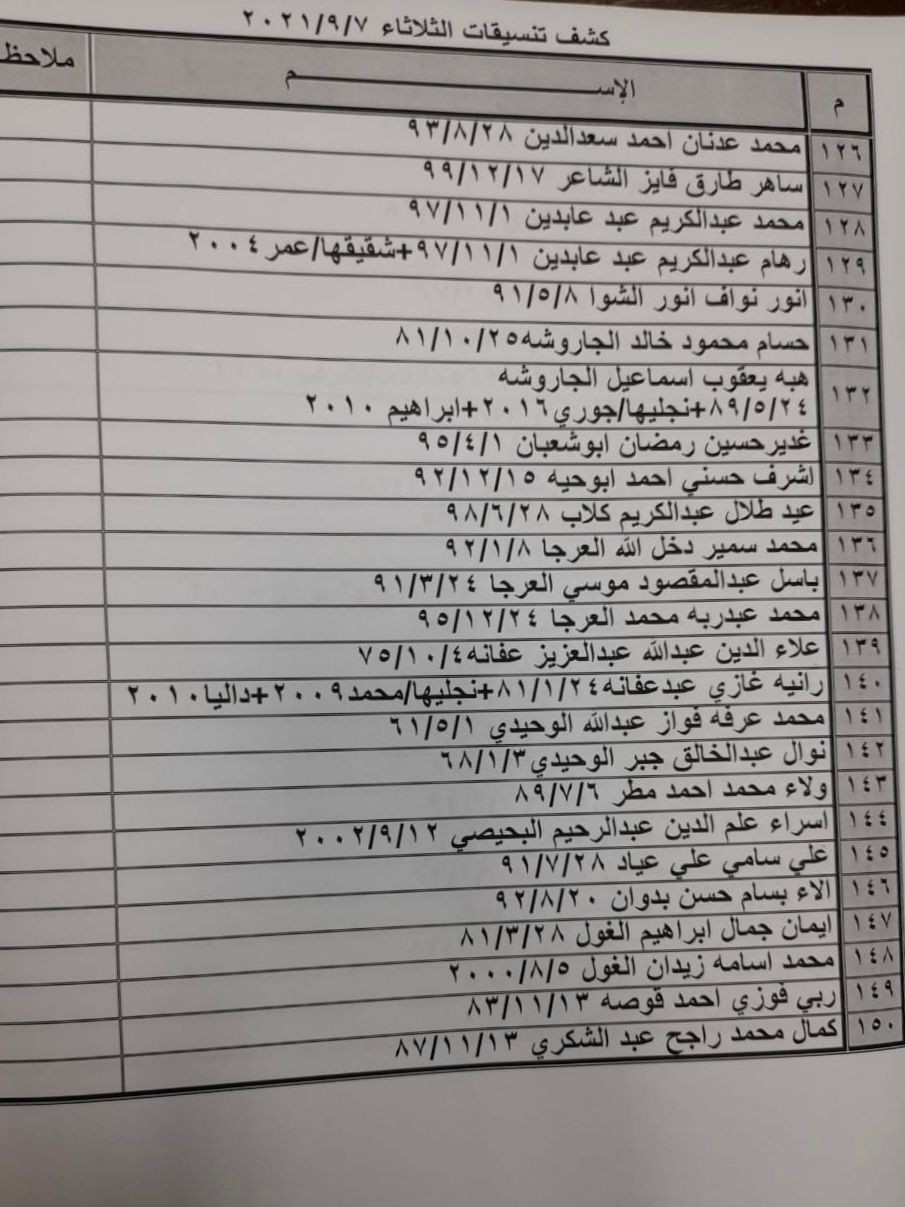 كشف تنسيقات الثلاثاء ٢٠٢١/٩/٧
م الإســـــم ملاحظ
١٢٦ محمد عدنان احمد سعدالدين ٩٣/٨/٢٨
١٢٧ ساهر طارق فايز الشاعر ٩٩/١٢/١٧
١٢٨ محمد عبدالكريم عبد عابدين ٩٧/١١/١
١٢٩ رهام عبدالكريم عبد عابدين ٩٧/١١/١+شقيقها/عمر ٢٠٠٤
١٣٠ انور نواف انور الشوا ٩١/٥/٨
١٣١ حسام محمود خالد الجاروشه٨١/١٠/٢٥
١٣٢ هبه يعقوب اسماعيل الجاروشه
٨٩/٥/٢٤+نجليها/جوري٢٠١٦+ابراهيم ٢٠١٠
١٣٣ غديرحسين رمضان ابوشعبان ٩٥/٤/١
١٣٤ اشرف حسني احمد ابوحيه ٩٢/١٢/١٥
١٣٥ عيد طلال عبدالكريم كلاب ٩٨/٦/٢٨
١٣٦ محمد سمير دخل الله العرجا ٩٢/١/٨
١٣٧ باسل عبدالمقصود موسي العرجا ٩١/٣/٢٤
١٣٨ محمد عبدربه محمد العرجا ٩٥/١٢/٢٤
١٣٩ علاء الدين عبدالله عبدالعزيز عفانه٧٥/١٠/٤
١٤٠ رانيه غازي عبدعفانه٨١/١/٢٤+نجليها/محمد٢٠٠٩+داليا٢٠١٠
١٤١ محمد عرفه فواز عبدالله الوحيدي ٦١/٥/١
١٤٢ نوال عبدالخالق جبر الوحيدي٦٨/١/٣
١٤٣ ولاء محمد احمد مطر ٨٩/٧/٦
١٤٤ اسراء علم الدين عبدالرحيم البحيصي ٢٠٠٢/٩/١٢
١٤٥ علي سامي علي عياد ٩١/٧/٢٨
١٤٦ الاء بسام حسن بدوان ٩٢/٨/٢٠
١٤٧ ايمان جمال ابراهيم الغول ٨١/٣/٢٨
١٤٨ محمد اسامه زيدان الغول ٢٠٠٠/٨/٥
١٤٩ ربي فوزي احمد قوصه ٨٣/١١/١٣
١٥٠ كمال محمد راجح عبد الشكري ٨٧/١١/١٣